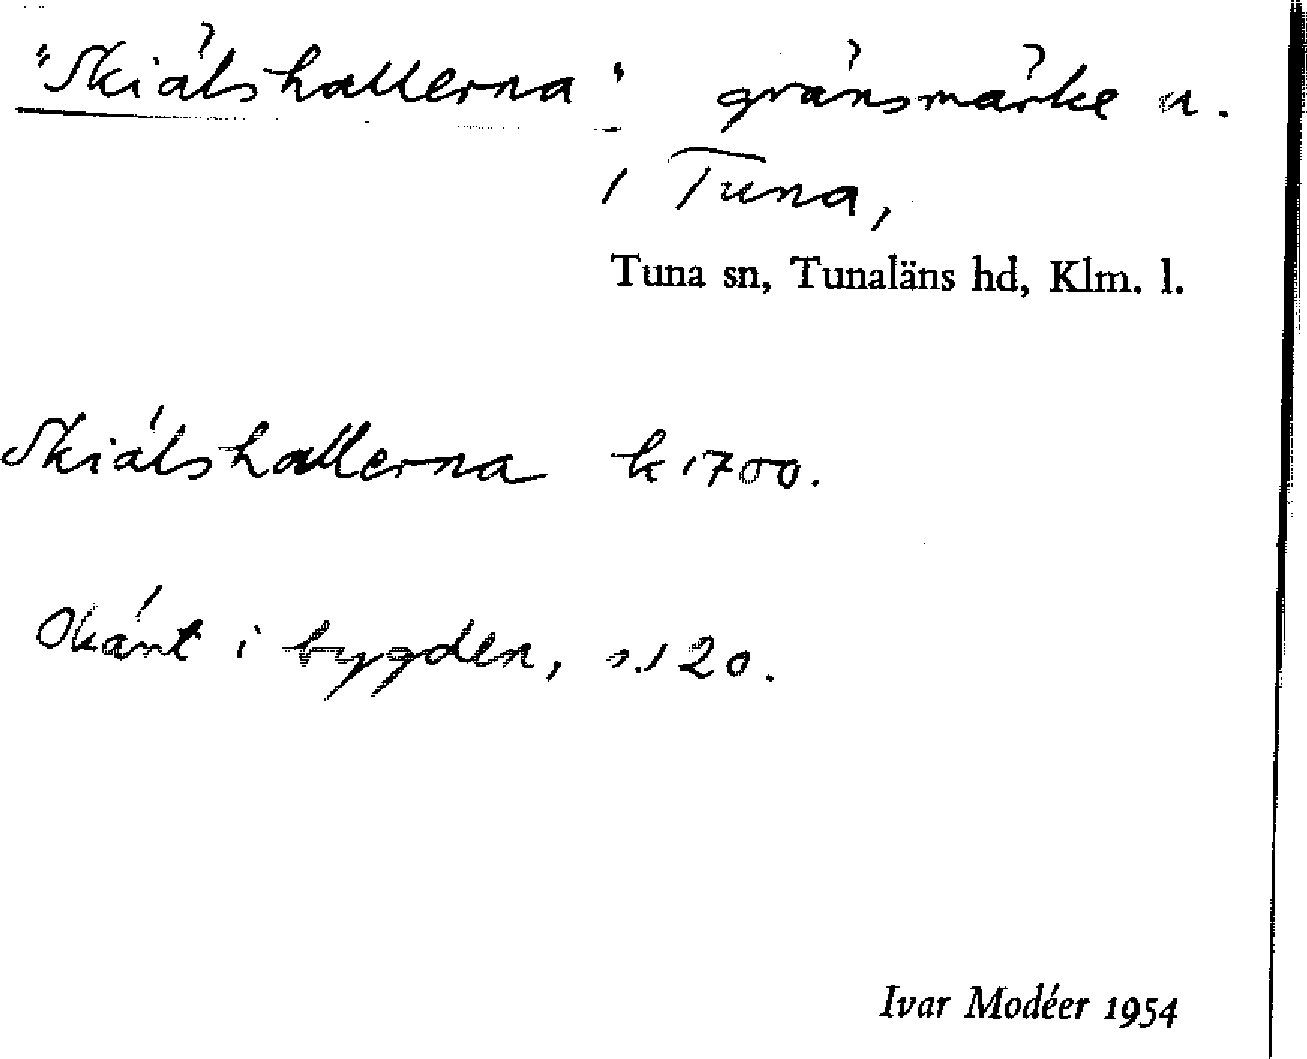 "Skiälshallerna" gränsmärke u.
i Tuna,
Tuna sn, Tunaläns hd, Klm. l.
Skiälshallerna k 1700.
Okänt i bygden, s. 120.
Ivar Modéer 1954